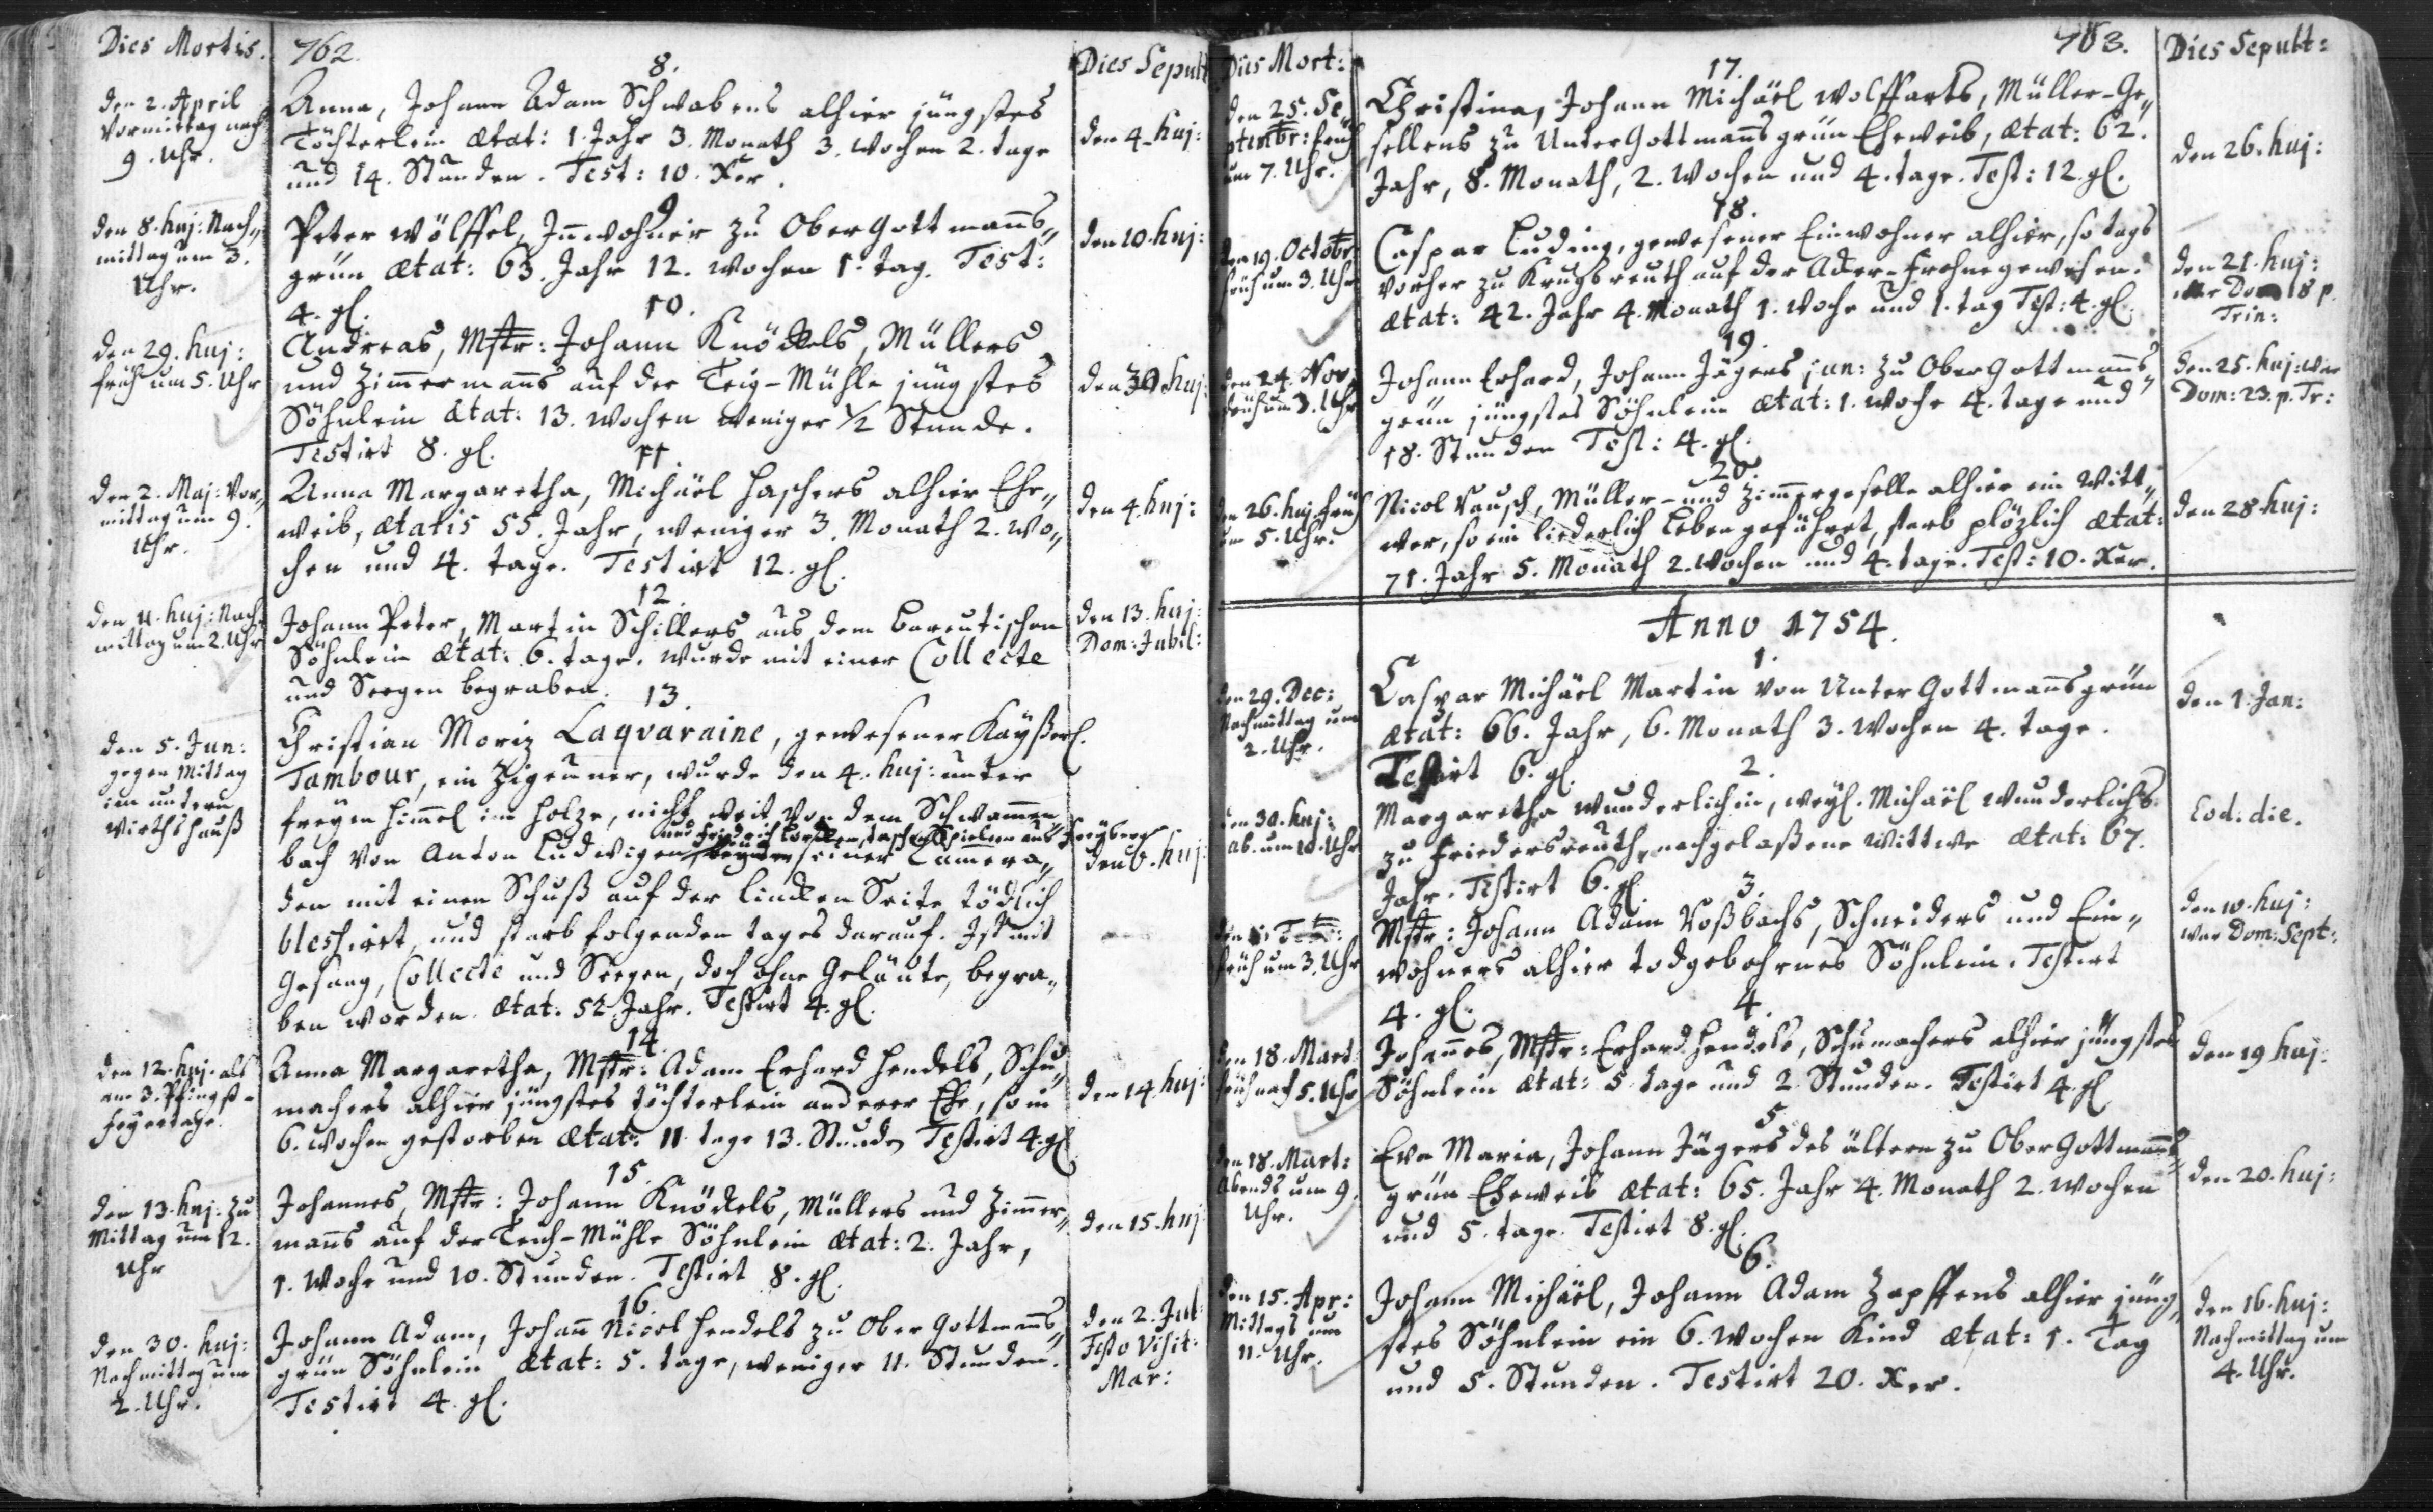 Dies Mortis.
762.
Dies Sepult
8.
den 2. April
Vormittag nach
9. Uhr.
Anna, Johann Adam Schwabens alhier jüngstes
Töchterlein ætat: 1. Jahr 3. Monath 3. Wochen 2. tage
und 14. Stunden. Test: 10. Xer.
den 4. huj:
9.
den 8. huj: Nach„
mittag um 3.
Uhr.
Peter Wölffel, Innwohner zu Ober Gottmanns„
grün ætat: 63. Jahr 12. Wochen 1. tag. Test:
4. gl.
den 10. huj:
10.
den 29. huj:
früh um 5. Uhr
Andreas, Mstr: Johann Knöckels, Müllers
und Zimmermanns auf der Teig-Mühle jüngstes
Söhnlein ætat: 13. Wochen weniger 1/2 Stunde.
Testirt 8. gl.
den 30. huj:
11.
den 2. Maj: Vor„
mittag um 9.
Uhr.
Anna Margaretha, Michäel Haschers alhier Ehe„
weib, ætatis 55. Jahr, weniger 3. Monath 2. Wo„
chen und 4. tage. Testirt 12. gl.
den 4. huj:
12.
den 11. huj: Nach„
mittag um 2. Uhr
Johann Peter, Martin Schillers aus dem Bareutischen
Söhnlein ætat: 6. tage. wurde mit einer Collecte
und Seegen begraben.
den 13. huj:
Dom: Jubil:
13.
den 5. Jun:
gegen Mittag
im untern
Wirthshauß
Christian Moriz Laqvaraine, gewesener Kayßerl.
Tambour, ein Zigeuner, wurde den 4. huj: unter
freyen Himmel im Holze, nicht weit von dem Schwammen„
und Friedrich
bach von Anton Ludwigen seiner Camera„
den mit einen Schuß auf der lincken Seite tödlich
blessirt, und starb folgenden tages darauf. Ist mit
Gesang, Collecte und Seegen, doch ohne Geläute, begra„
ben worden. ætat: 52. Jahr. Testirt 4. gl.
den 6. huj:
14.
den 12. huj. als
am 3. Pfingst-
feyertage.
Anna Margaretha, Mstr: Adam Erhard Hendels, Schu„
machers alhier jüngstes töchterlein anderer Ehe, so in
6. Wochen gestorben ætat: 11. tage 13. Stunden Testirt 4. gl.
den 14. huj:
15.
den 13. huj. zu
Mittag um 12.
Uhr
Johannes, Mstr: Johann Knöckels, Müllers und Zimmer„
manns auf der Teich-Mühle Söhnlein ætat: 2. Jahr,
1. Woche und 10. Stunden. Testirt 8. gl.
den 15. huj
16.
den 30. huj:
Nachmittag um
2. Uhr.
Johann Adam, Johann Nicol Hendels zu Ober Gottmanns„
grün Söhnlein ætat: 5. tage, weniger 11. Stunden.
Testirt 4. gl.
den 2. Jul:
Festo Visit:
Mar:
Dies Mort:
763.
Dies Sepult:
17.
den 25. Se
ptembr: früh
um 7. Uhr.
Christina, Johann Michäel Wolffarts, Müller-Ge„
sellens zu Unter Gottmannsgrün Eheweib, ætat: 62.
Jahr, 8. Monath, 2. Wochen und 4. tage. Test: 12. gl.
den 26. huj:
18.
den 19. Octobr
früh um 3. Uhr
Caspar Luding, gewesener Einwohner alhier, so tags
vorher zu Krugsreuth auf der Acker-Frohne gewesen.
ætat: 42. Jahr 4. Monath 1. Woche und 1. tag Test: 4. gl.
den 21. huj:
war Dom 18 p.
Trin:
19.
den 24. Nov:
früh um 3. Uhr
Johann Erhard, Johann Jägers jun: zu Ober Gottmanns„
grün jüngstes Söhnlein ætat: 1. Woche 4. tage und
18. Stunden Test: 4. gl.
den 25. huj: war
Dom: 23. p. Tr:
20.
den 26. huj früh
um 5. Uhr.
Nicol Rausch, Müller- und Zimmergeselle alhier ein Witt„
wer, so ein liederlich Leben geführet, starb plözlich ætat:
71. Jahr 5. Monath 2. Wochen und 4. tage. Test: 10. Xer.
den 28. huj:
Anno 1754.
1.
den 29. Dec:
Nachmittag um
2. Uhr.
Caspar Michäel Martin von Unter Gottmannsgrün
ætat: 66. Jahr, 6. Monath 3. Wochen 4. tage.
Testirt 6. gl.
den 1. Jan:
2.
den 30. huj:
ab. um 10. Uhr
Margaretha Wunderlichin, weyl. Michäel Wunderlichs
zu Friedersreuth, nachgelaßene Wittwe ætat: 67.
Jahr. Testirt 6. gl.
Eod: die.
3.
früh um 3. Uhr
Mstr: Johann Adam Voßbachs, Schneiders und Ein„
wohners alhier todgebohrnes Söhnlein. Testirt
4. gl.
den 10. huj:
war Dom: Sept:
4.
den 18. Mart
früh nach 5. Uhr
Johannes, Mstr: Erhard Hendels, Schumachers alhier jüngstes
Söhnlein ætat: 5. tage und 2. Stunden. Testirt 4. gl
den 19. huj:
5.
den 18. Mart:
Abends um 9.
Uhr.
Eva Maria, Johann Jägers des ältern zu Ober Gottmanns„
grün Eheweib ætat: 65. Jahr 4. Monath 2. Wochen
und 5. tage. Testirt 8. gl.
den 20. huj:
6.
den 15. Apr:
Mittags um
11. Uhr.
Johann Michäel, Johann Adam Zapffens alhier jüng„
stes Söhnlein ein 6. Wochen Kind ætat: 1. Tag
und 5. Stunden. Testirt 20. Xer.
den 16. huj:
Nachmittag um
4. Uhr.